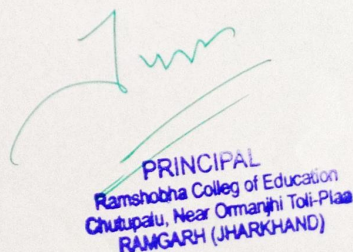 PRINCIPAL
Ramshobha Colleg of Education
Chutupalu, Near Ormanjhi Toli-Plaa
RAMGARH (JHARKHAND)